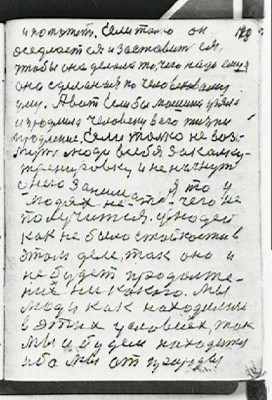 и попутт. Если только он 129
оседлается и заставит ся,
чтобы она делала то, что надо ему,
она сделаная по человеческому
уму. А вот если бы машину взяли
и продлила человеку его жизни
продление. Если только не воз-
мут люди в себя закалку-
тренировку и не начнут
этого занимать я то у
людях не-что-чего не
получится. у людей
как не было стойкости в
этом деле, так оно и
не будет продолже-
ния ни какого. мы
люди как находились
в этих условиях, так
мы и будем находится
ибо мы от природы